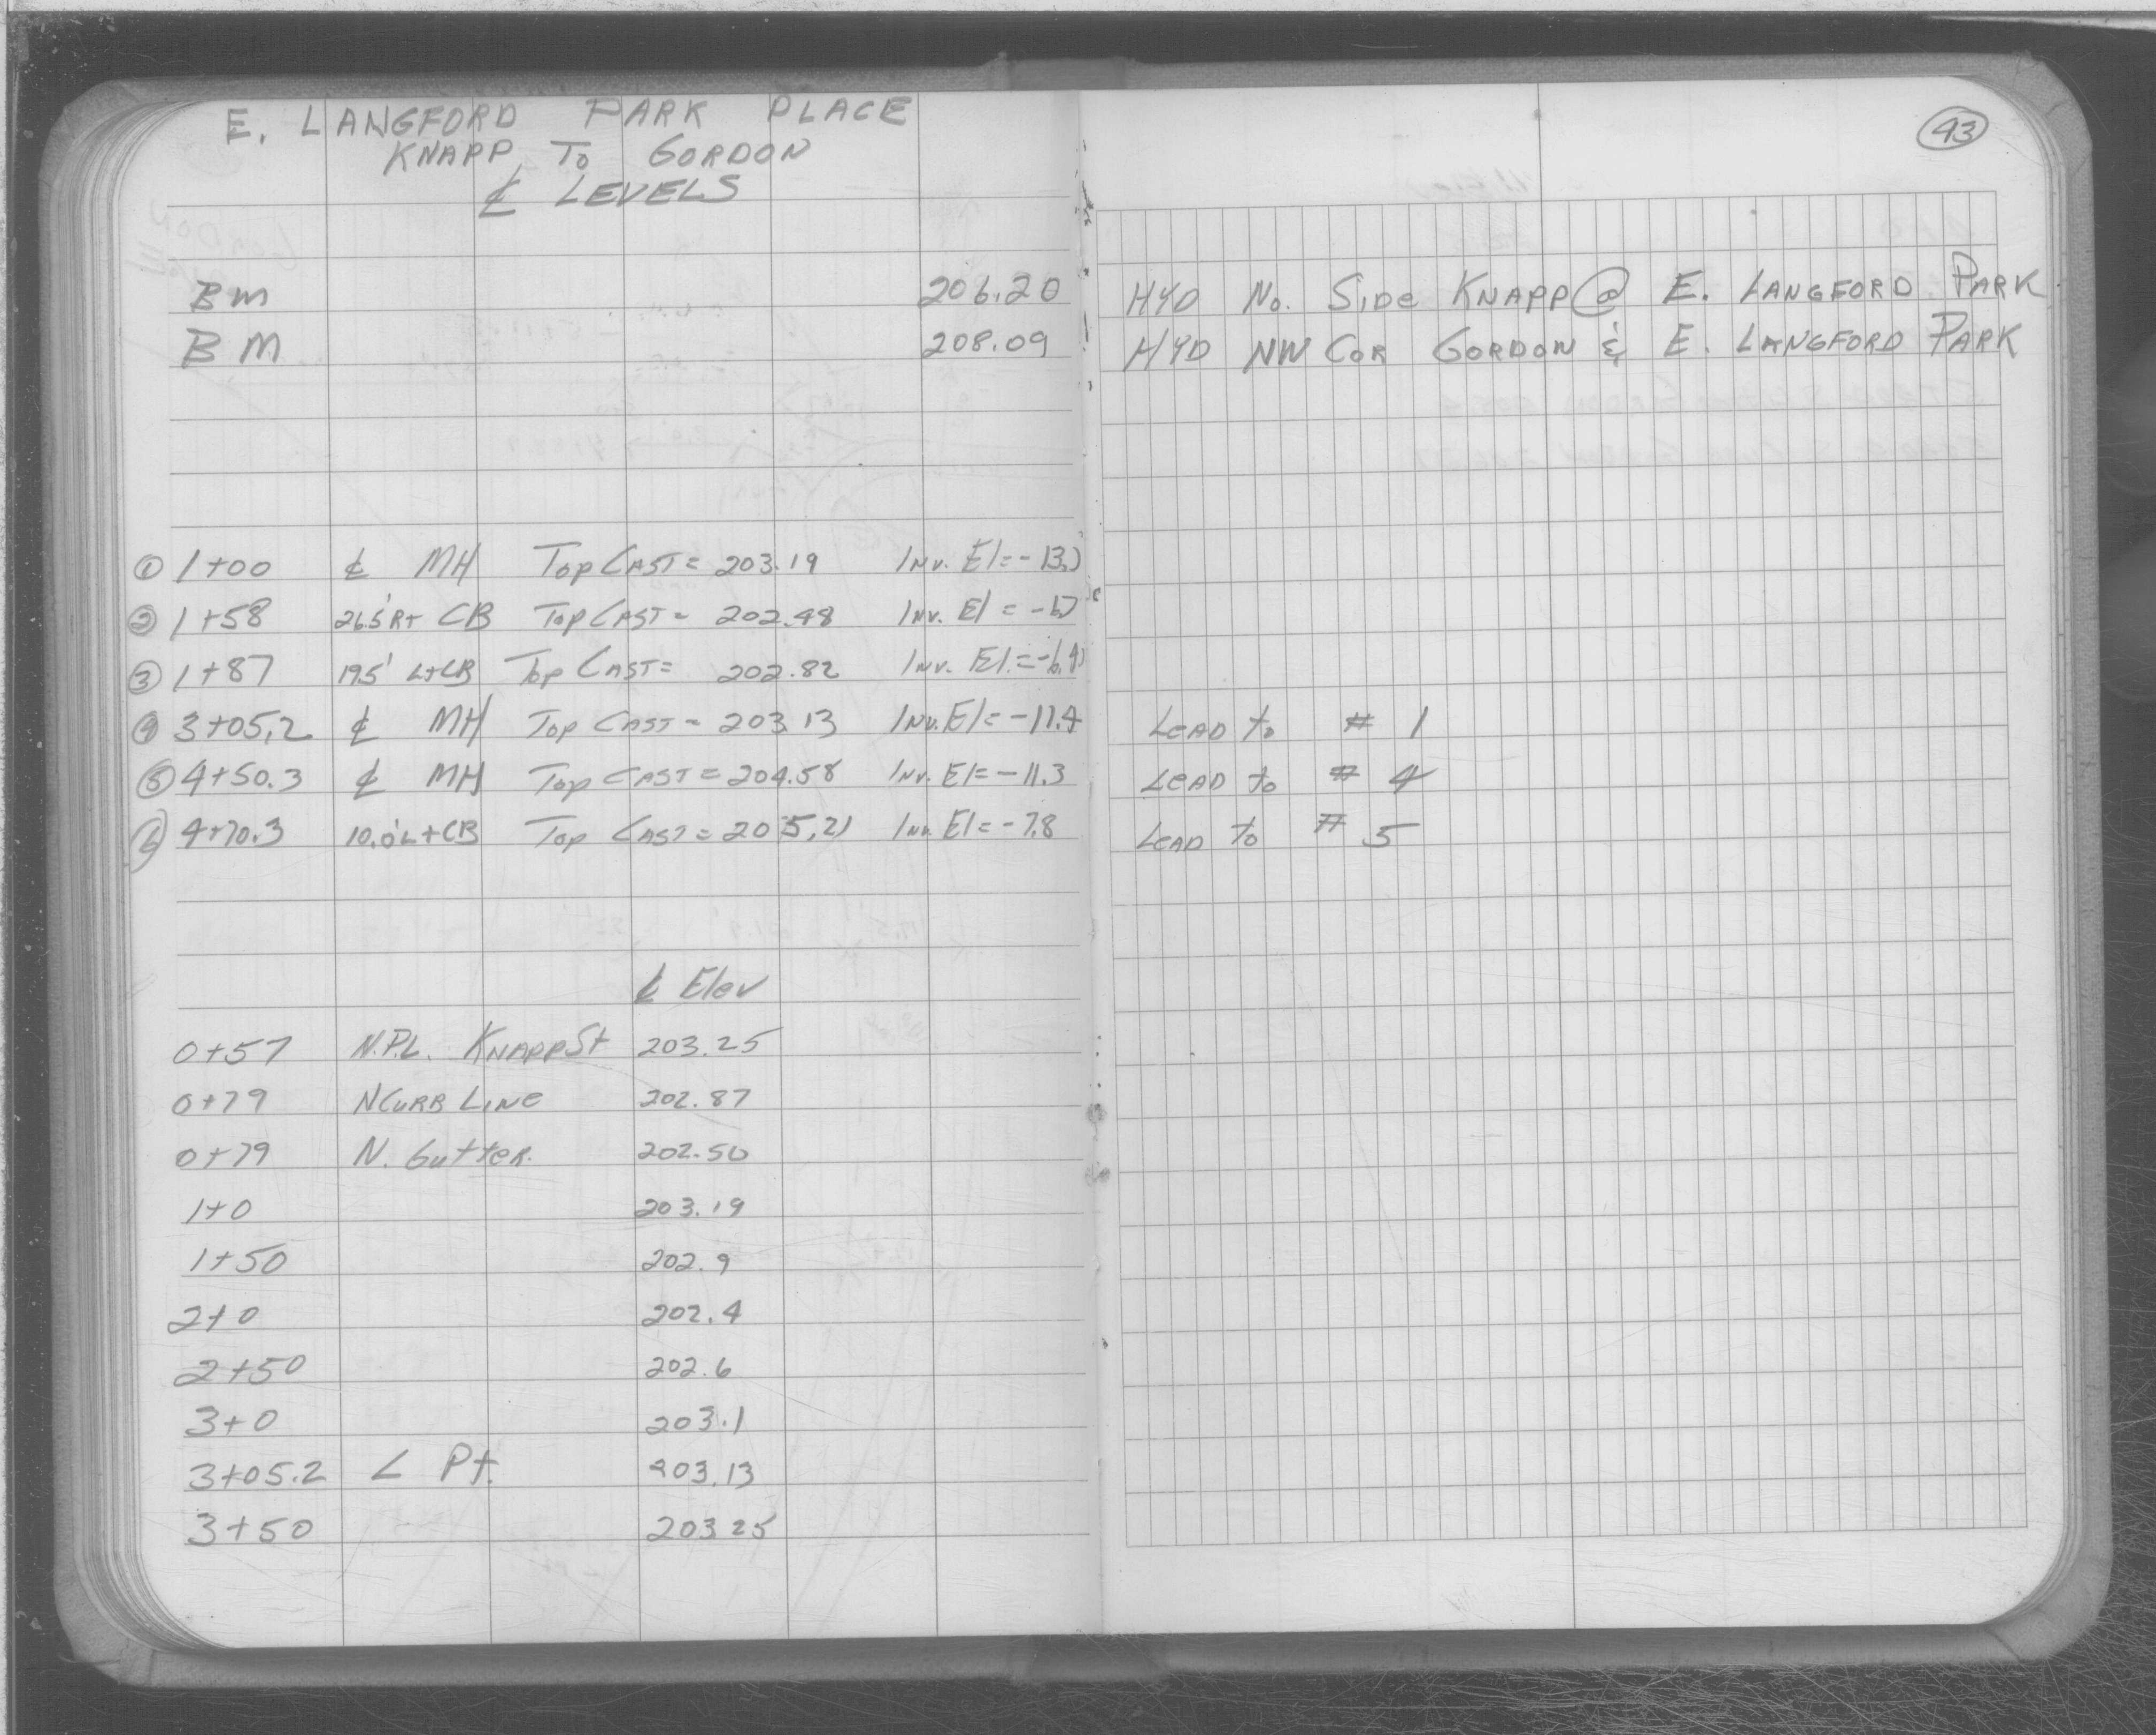 E. LANGFORD PARK PLACE
KNAPP TO GORDON
℄ LEVELS
43
BM 206.20 HYD No. SIDe KNAPP @ E. LANGFORD PARK
BM 208.09 HYD NW COR GORDON & E. LANGFORD PARK
① 1+00 ℄ MH Top CAST= 203.19 INV. El=-13.
② 1+58 26.5' Rt CB Top CAST= 202.48 INV. El = -6.
③ 1+87 19.5' Lt CB Top CAST= 202.82 INV. El.=-6.4
④ 3+05.2 ℄ MH Top CAST= 203.13 INV. El=-11.4 LeAD to # 1
⑤ 4+50.3 ℄ MH Top CAST= 204.58 INV. El=-11.3 LeAD to # 4
⑥ 4+70.3 10.0' Lt CB Top CAST= 205.21 INV. El=-7.8 LeAD to # 5
℄ Elev
0+57 N.P.L. KNAPP St 203.25
0+79 N CURB LINe 202.87
0+79 N. GutteR. 202.50
1+0 203.19
1+50 202.9
2+0 202.4
2+50 202.6
3+0 203.1
3+05.2 ∠ Pt. 203.13
3+50 203.25